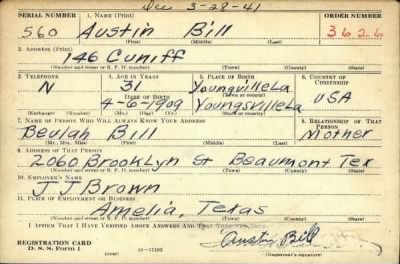 Dec 3-28-41
SERIAL NUMBER 1. NAME (Print) ORDER NUMBER
560 Austin Bill 3626
(First) (Middle) (Last)
2. ADDRESS (Print)
146 Cuniff
(Number and street or R. F. D. number) (Town) (County) (State)
3. TELEPHONE 4. AGE IN YEARS 5. PLACE OF BIRTH 6. COUNTRY OF CITIZENSHIP
N 31 Youngville La
DATE OF BIRTH (Town or county)
4-6-1909 Youngsville La USA
(Exchange) (Number) (Mo.) (Day) (Yr.) (State or country)
7. NAME OF PERSON WHO WILL ALWAYS KNOW YOUR ADDRESS 8. RELATIONSHIP OF THAT PERSON
Beulah Bill Mother
(Mr., Mrs., Miss) (First) (Middle) (Last)
9. ADDRESS OF THAT PERSON
2060 Brooklyn St Beaumont Tex
(Number and street or R. F. D. number) (Town) (County) (State)
10. EMPLOYER'S NAME
J J Brown
11. PLACE OF EMPLOYMENT OR BUSINESS
Amelia, Texas
(Number and street or R. F. D. number) (Town) (County) (State)
I AFFIRM THAT I HAVE VERIFIED ABOVE ANSWERS AND THAT THEY ARE TRUE.
REGISTRATION CARD
D. S. S. Form 1 16-17105 Austin Bill
(Registrant's signature)